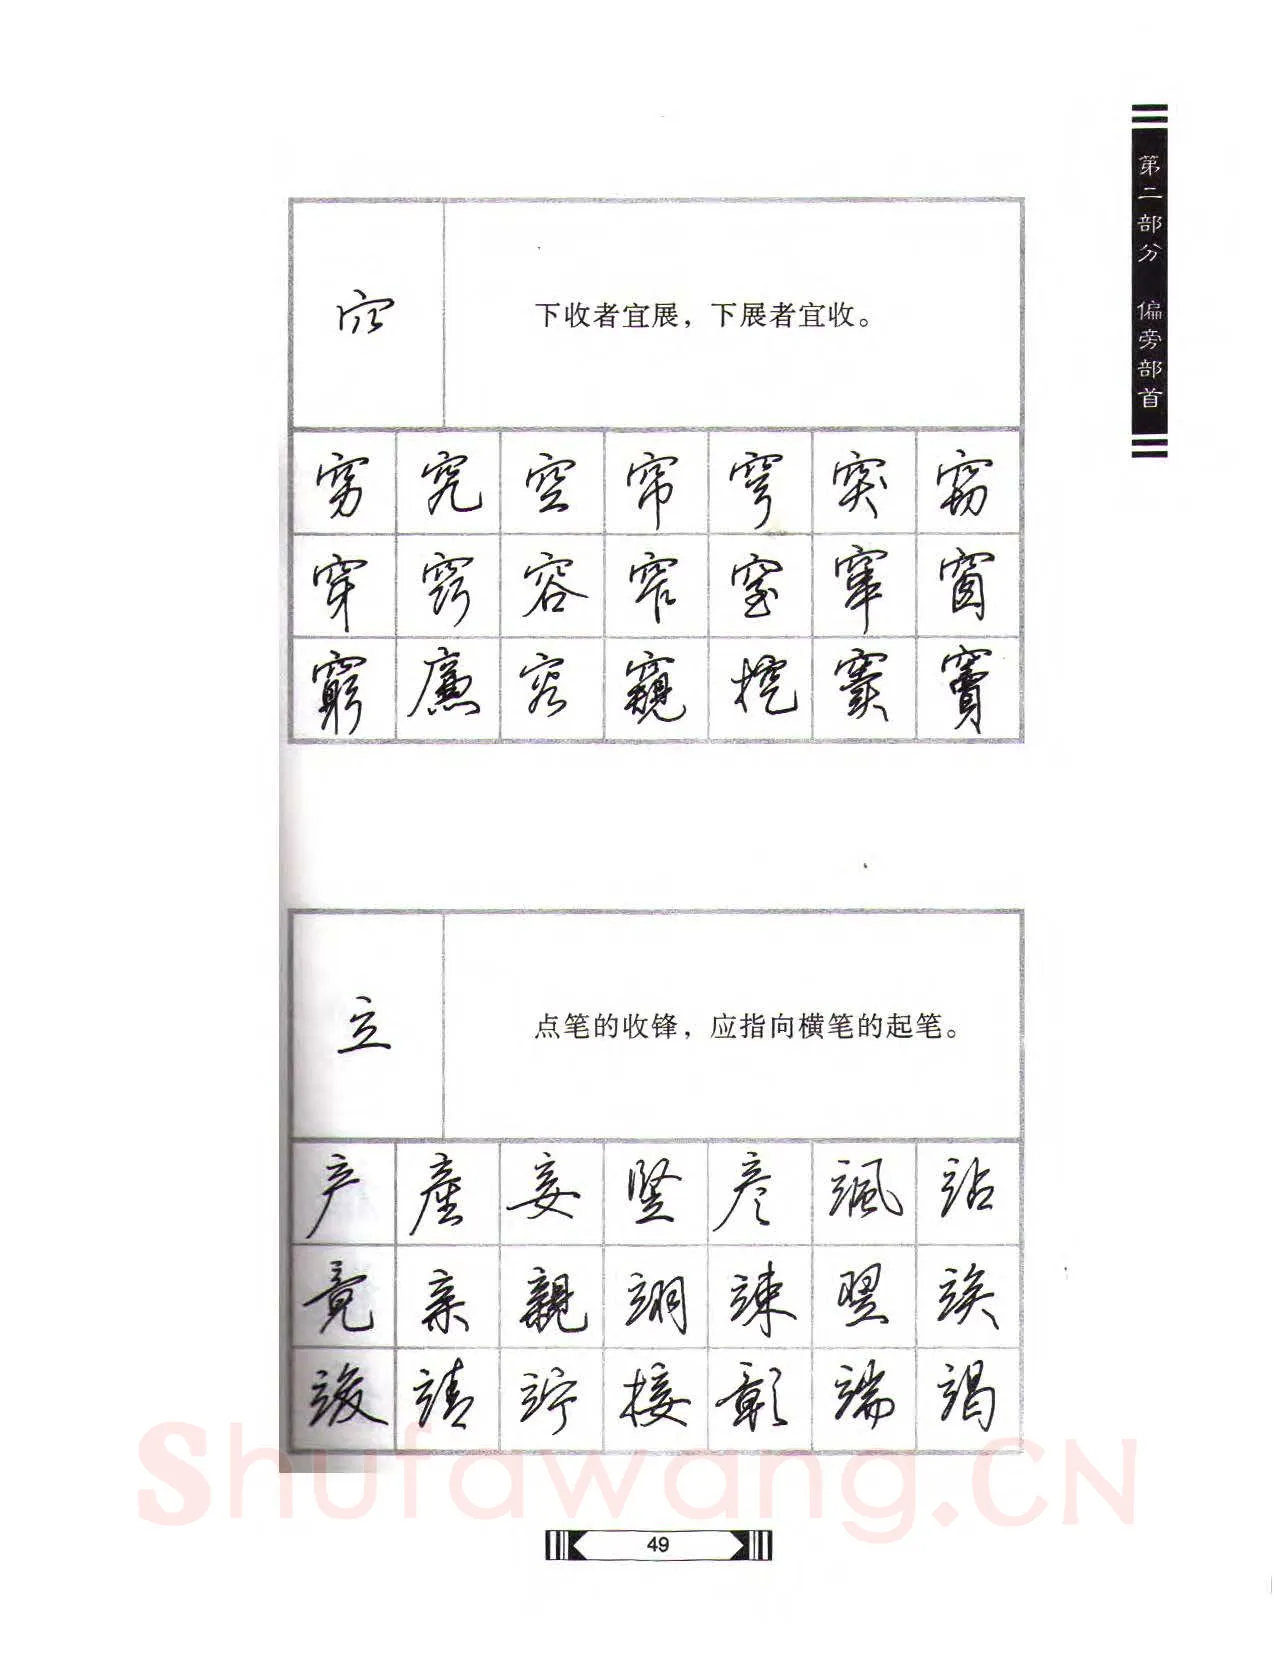 第二部分 偏旁部首
穴
下收者宜展，下展者宜收。
穷 究 空 帘 穹 突 窃
穿 窍 容 窄 窒 窜 窗
窮 廉 容 窥 挖 窦 竇
立
点笔的收锋，应指向横笔的起笔。
产 產 妾 竖 彦 飒 站
竟 亲 親 翊 竦 翌 竢
竣 靖 竚 接 彰 端 竭
Shufawang.CN
49